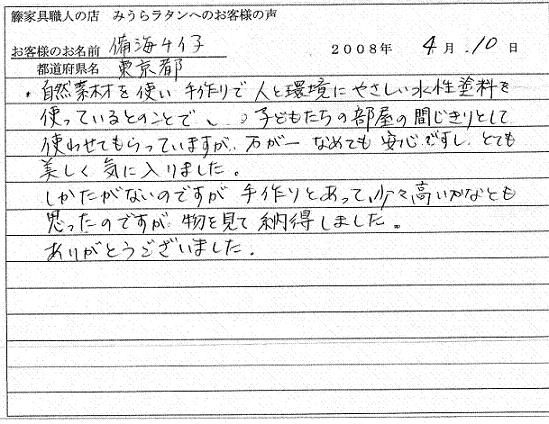 籐家具職人の店 みうらラタンへのお客様の声
お客様のお名前 備海チイ子 2008年 4月 10日
都道府県名 東京都
・自然素材を使い 手作りで 人と環境にやさしい水性塗料を
使っているとのことで、子どもたちの部屋の間じきりとして
使わせてもらっていますが、万が一 なめても 安心ですし、とても
美しく 気に入りました。
しかたがないのですが 手作りとあって、少々高いかなとも
思ったのですが、物を見て 納得しました。
ありがとうございました。